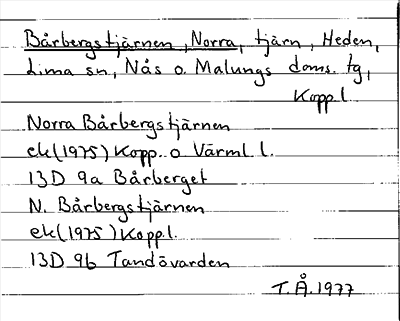 Bårbergstjärnen, Norra, tjärn, Heden,
Lima sn, Nås o. Malungs doms. tg,
Kopp.l
Norra Bårbergstjärnen
ek(1975) Kopp. o Värml. l.
13D 9a Bårberget
N. Bårbergstjärnen
ek(1975) Kopp.l.
13D 9b Tandövarden
T.Å.1977